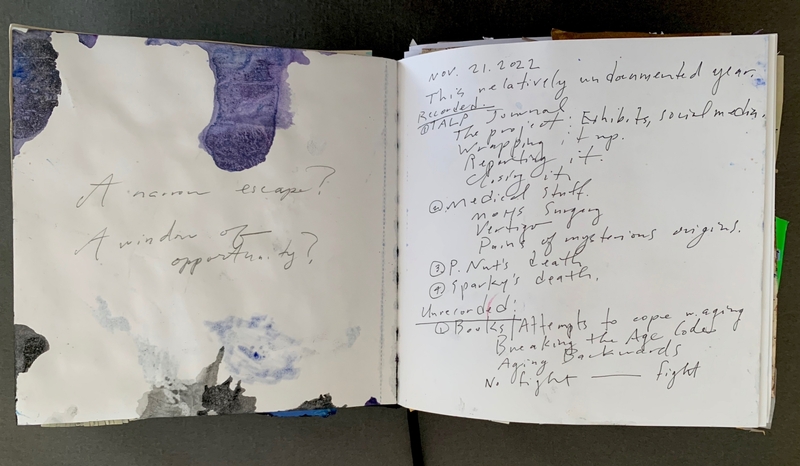 A narrow escape?
A window of
opportunity?
Nov. 21. 2022
This relatively undocumented year.
Recorded:
① TALP Journal
The project: Exhibits, social media,
Wrapping it up.
Reporting it.
Closing it.
② Medical Stuff.
MOHS Surgery
Vertigo
Pains of mysterious origins.
③ P. Nut's death
④ Sparky's death.
Unrecorded:
① Books/Attempts to cope w. aging
Breaking the Age Code
Aging Backwards
No fight — fight